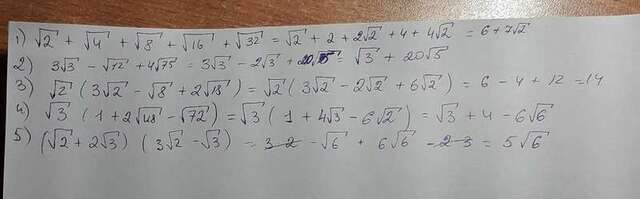 1) √2 + √4 + √8 + √16 + √32 = √2 + 2 + 2√2 + 4 + 4√2 = 6 + 7√2
2) 3√3 - √12 + 4√75 = 3√3 - 2√3 + = √3 + 20√5
3) √2 (3√2 - √8 + 2√18) = √2 (3√2 - 2√2 + 6√2) = 6 - 4 + 12 = 14
4) √3 (1 + 2√48 - √72) = √3 (1 + 4√3 - 6√2) = √3 + 4 - 6√6
5) (√2 + 2√3) (3√2 - √3) = 3·2 - √6 + 6√6 - 2·3 = 5√6